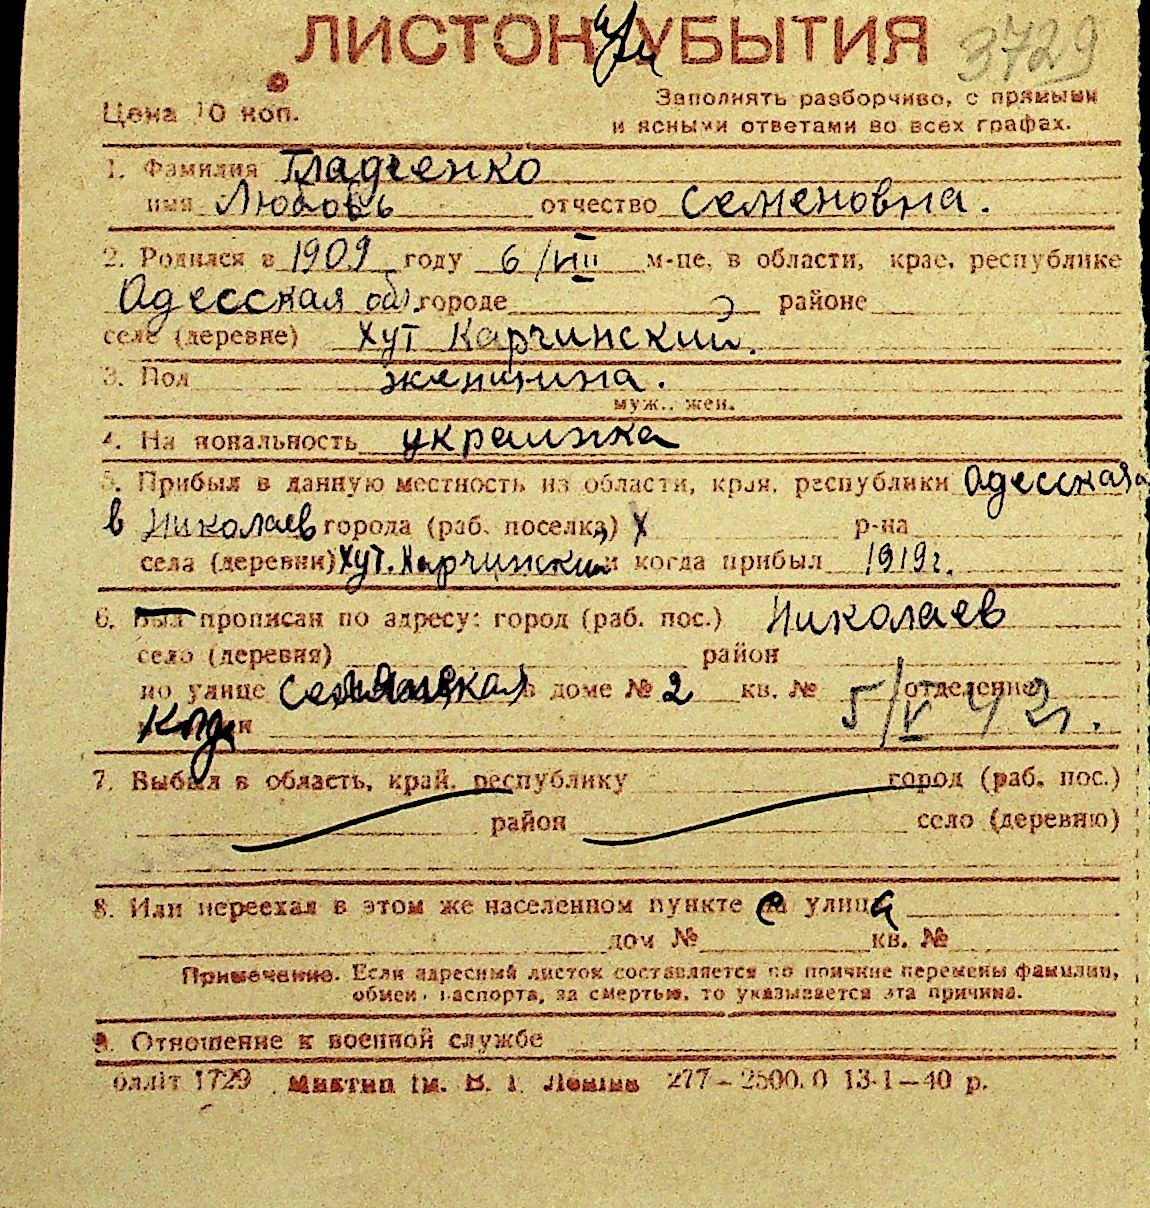 ЛИСТОК УБЫТИЯ 3729
Цена 10 коп.
Заполнять разборчиво, с прямыми
и ясными ответами во всех графах.
1. Фамилия Гладченко
имя Любовь отчество Семеновна.
2. Родился в 1909 году 6/VIII м-це, в области, крае, республике
Одесская обл. городе районе
селе (деревне) Хут Карчинский.
3. Пол женщина.
муж., жен.
4. Национальность украинка
5. Прибыл в данную местность из области, края, республики Одесская
в Николаев города (раб. поселка) х р-на
села (деревни) Хут. Карчинский и когда прибыл 1919г.
6. Был прописан по адресу: город (раб. пос.) Николаев
село (деревня) район
по улице в доме № 2 кв. № отделение
5/V 42г.
7. Выбыл в область, край, республику город (раб. пос.)
район село (деревню)
8. Или переехал в этом же населенном пункте на улицу
дом № кв. №
Примечание. Если адресный листок составляется по причине перемены фамилии,
обмена паспорта, за смертью, то указывается эта причина.
9. Отношение к военной службе
облліт 1729 Миктип ім. В. І. Леніна 277—2500.0 13-1—40 р.